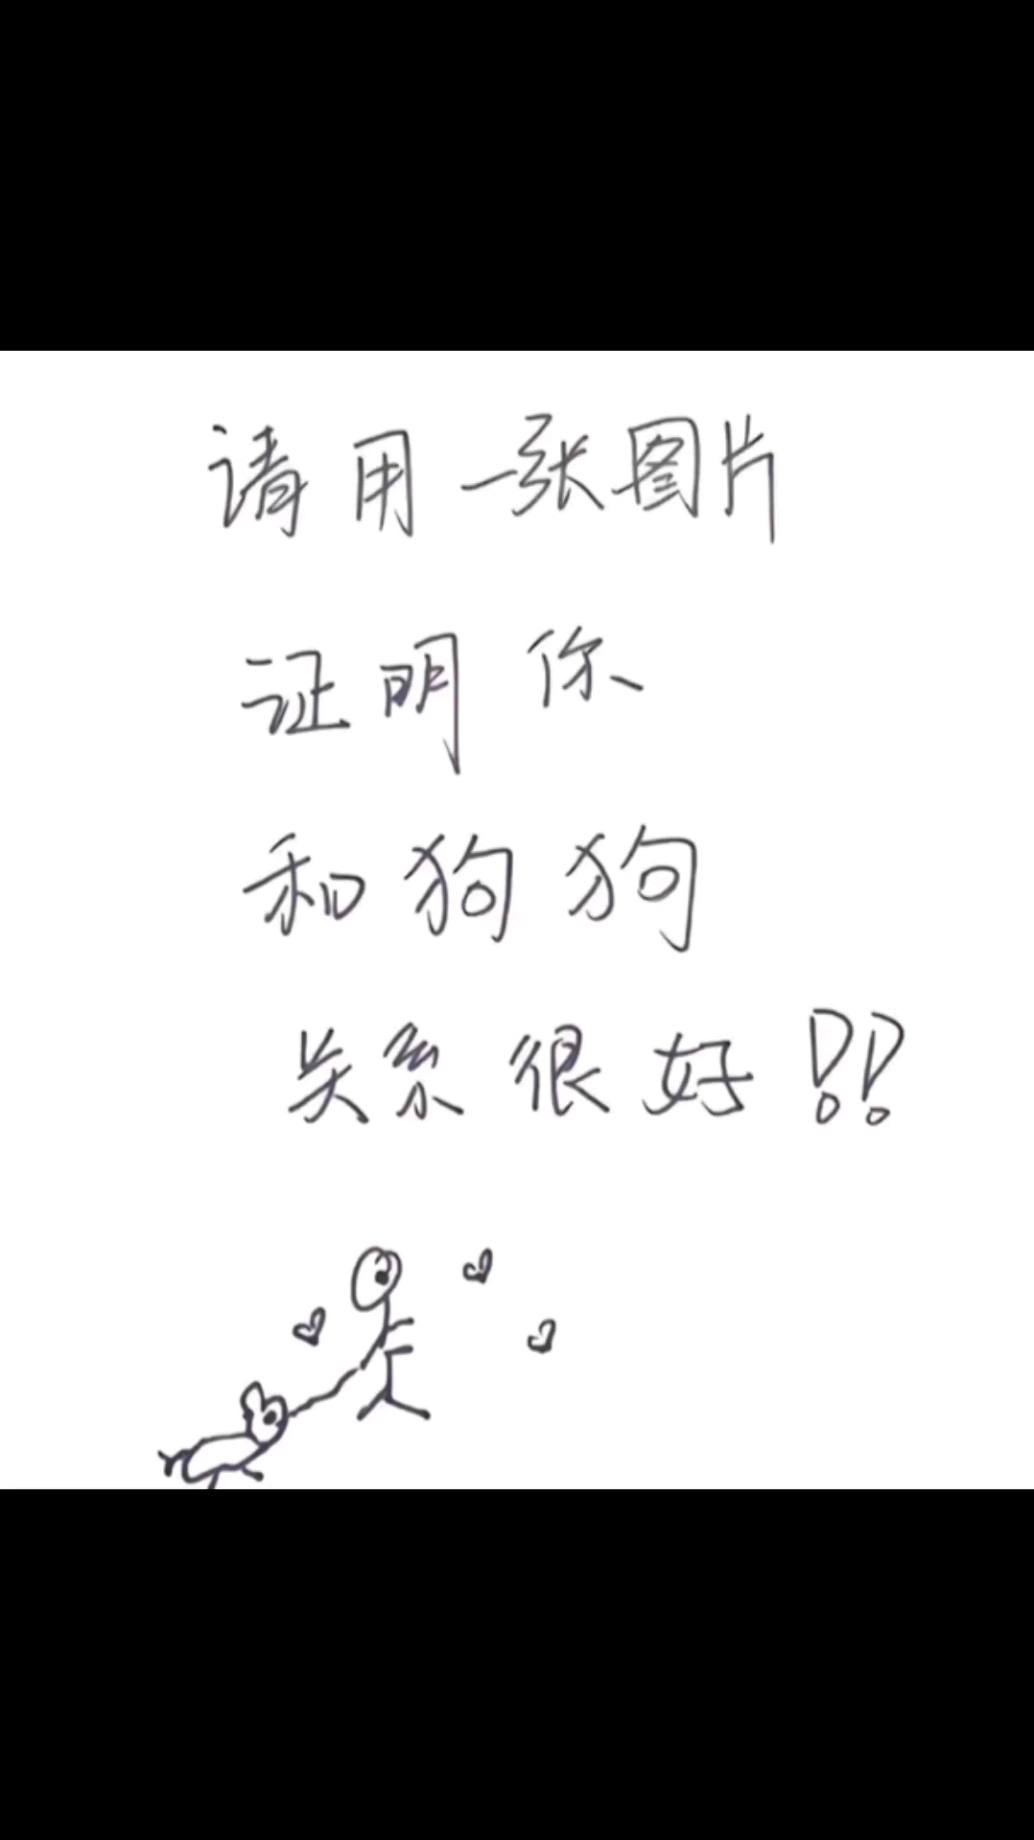 请用一张图片
证明你
和狗狗
关系很好!!